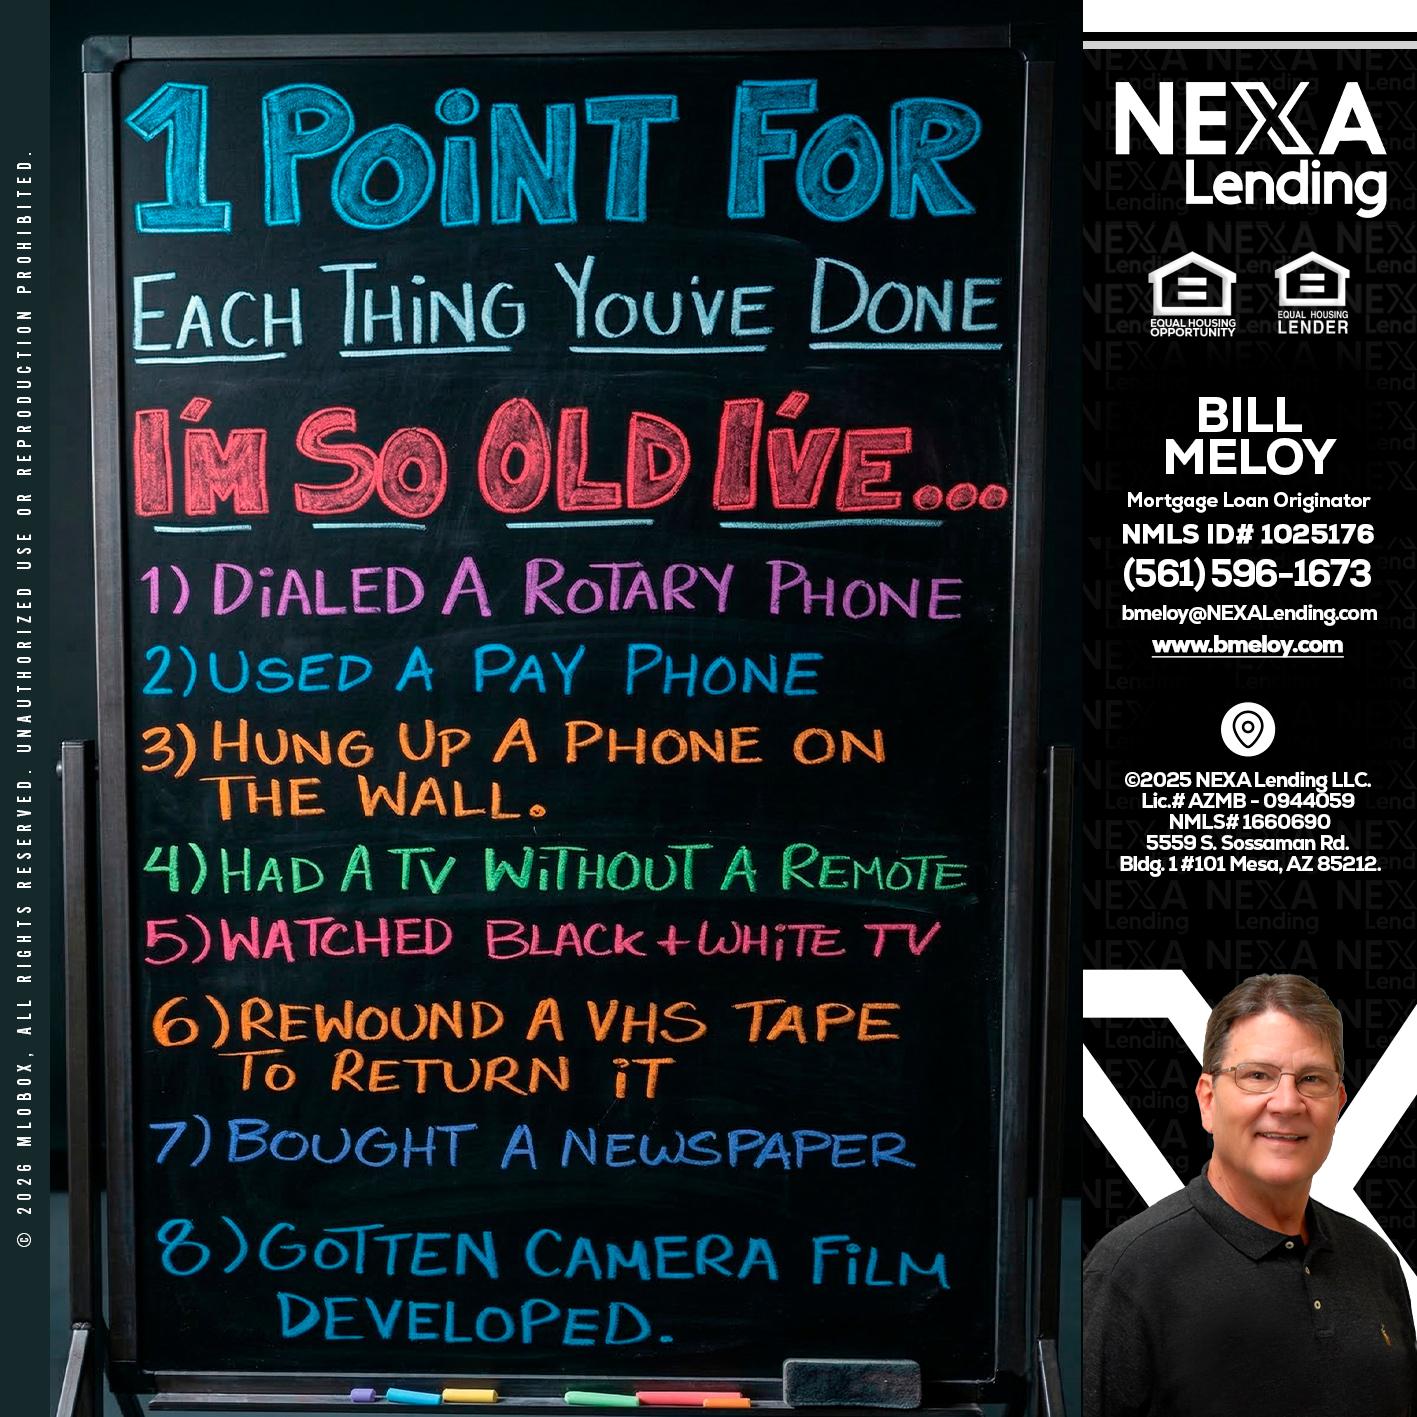 1 POiNT FOR
EACH THiNG YOU'VE DONE
I'M SO OLD I'VE...
1) DiALED A ROTARY PHONE
2) USED A PAY PHONE
3) HUNG UP A PHONE ON
THE WALL.
4) HAD A TV WiTHOUT A REMOTE
5) WATCHED BLACK + WHiTE TV
6) REWOUND A VHS TAPE
TO RETURN iT
7) BOUGHT A NEWSPAPER
8) GOTTEN CAMERA FiLM
DEVELOPED.
© 2026 MLOBOX, ALL RIGHTS RESERVED. UNAUTHORIZED USE OR REPRODUCTION PROHIBITED.
NEXA
Lending
EQUAL HOUSING
OPPORTUNITY
EQUAL HOUSING
LENDER
BILL
MELOY
Mortgage Loan Originator
NMLS ID# 1025176
(561) 596-1673
bmeloy@NEXALending.com
www.bmeloy.com
©2025 NEXA Lending LLC.
Lic.# AZMB - 0944059
NMLS# 1660690
5559 S. Sossaman Rd.
Bldg. 1 #101 Mesa, AZ 85212.